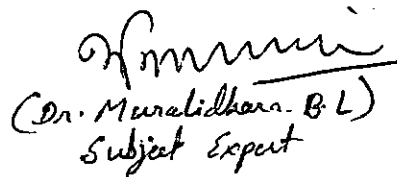 (Dr. Muralidhara. B. L)
Subject Expert